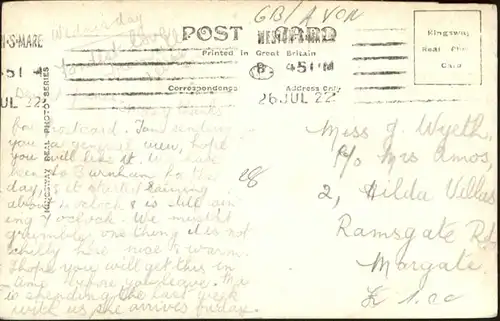 GB/AVON
Wednesday
POST CARD
Printed in Great Britain
Correspondence
Address Only
KINGSWAY REAL PHOTO SERIES
Kingsway
Real Photo
Card
N-S-MARE
4 51 PM
26 JUL 22
JUL 22
many thanks
for postcard. I am sending
you a general view, hope
you will like it. We have
been to Burnham to-
day, & it started raining
about o'clock & is still rain-
ing 7 o'clock. We mustn't
grumble, one thing it is not
chilly here nice & warm.
I hope you will get this in
time before you leave.
is spending the last week
with us she arrives
28
Miss J. Wyeth,
c/o Mrs Amos,
2, Hilda Villas
Ramsgate Rd
Margate.
£1.00